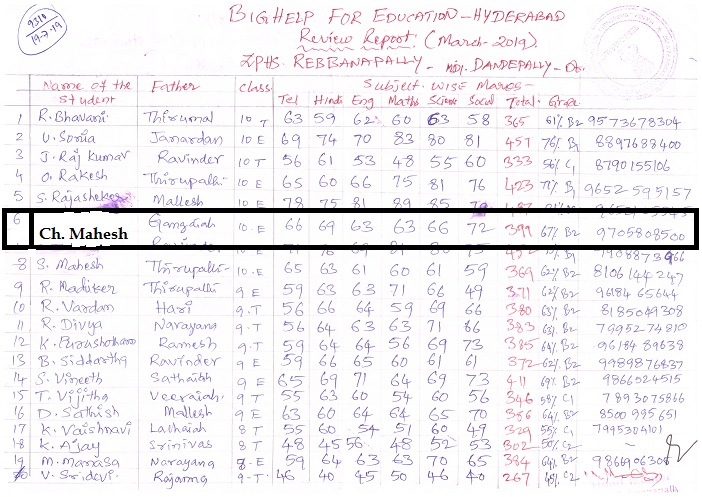 9310
19-7-19
BIGHELP FOR EDUCATION - HYDERABAD
Review Report. (March-2019).
ZPHS. REBBANAPALLY - DANDEPALLY
Name of the Student Father class Subject wise Marks -
Tel Hindi Eng Maths Science Social Total Grade
1 R. Bhavani Thirumal 10 T 63 59 62 60 63 58 365 61% B2 9573678304
2 V. Sonia Janardan 10 E 69 74 70 83 80 81 457 76% B1 8897688400
3 J. Raj Kumar Ravinder 10 T 56 61 53 48 55 60 333 56% C1 8790155106
4 O. Rakesh Thirupathi 10 E 65 60 66 75 81 76 423 71% B1 9652595157
5 S. Rajashekar Mallesh 10 E 78 75 81 89 85 79
6 Ch. Mahesh Gangaiah 10 E 66 69 63 63 66 72 399 67% B2 9705808500
8 S. Mahesh Thirupathi 10 E 65 63 61 60 61 59 369 62% B2 8106144247
9 R. Madhker Thirupathi 9 E 59 63 63 71 66 49 371 62% B2 9618465644
10 R. Vardan Hari 9 T 56 66 64 59 69 66 380 63% B2 8185049308
11 R. Divya Narayana 9 T 56 64 63 63 71 86 383 63% B2 7995274810
12 K. Purushotham Ramesh 9 T 59 64 64 56 69 73 385 64% B2 9618489638
13 B. Siddartha Ravinder 9 E 59 66 65 60 61 61 372 62% B2 9989876837
14 S. Vineeth Sathaiah 9 E 65 69 71 64 69 73 411 69% B2 9866024515
15 T. Vijitha Veeraiah 9 T 55 63 60 54 60 56 346 58% C1 7893075866
16 D. Sathish Mallesh 9 E 63 60 64 64 65 70 386 64% B2 8500995651
17 K. Vaishnavi Lachaiah 8 T 55 60 54 51 60 49 329 55% C1 7995304101
18 K. Ajay Srinivas 8 T 48 45 56 48 52 53 302 50% C2
19 M. Manasa Narayana 8 E 59 64 63 63 70 65 384 64% B2
20 V. Sridevi Rajanna 9 T 46 40 45 50 46 40 267 45% C2